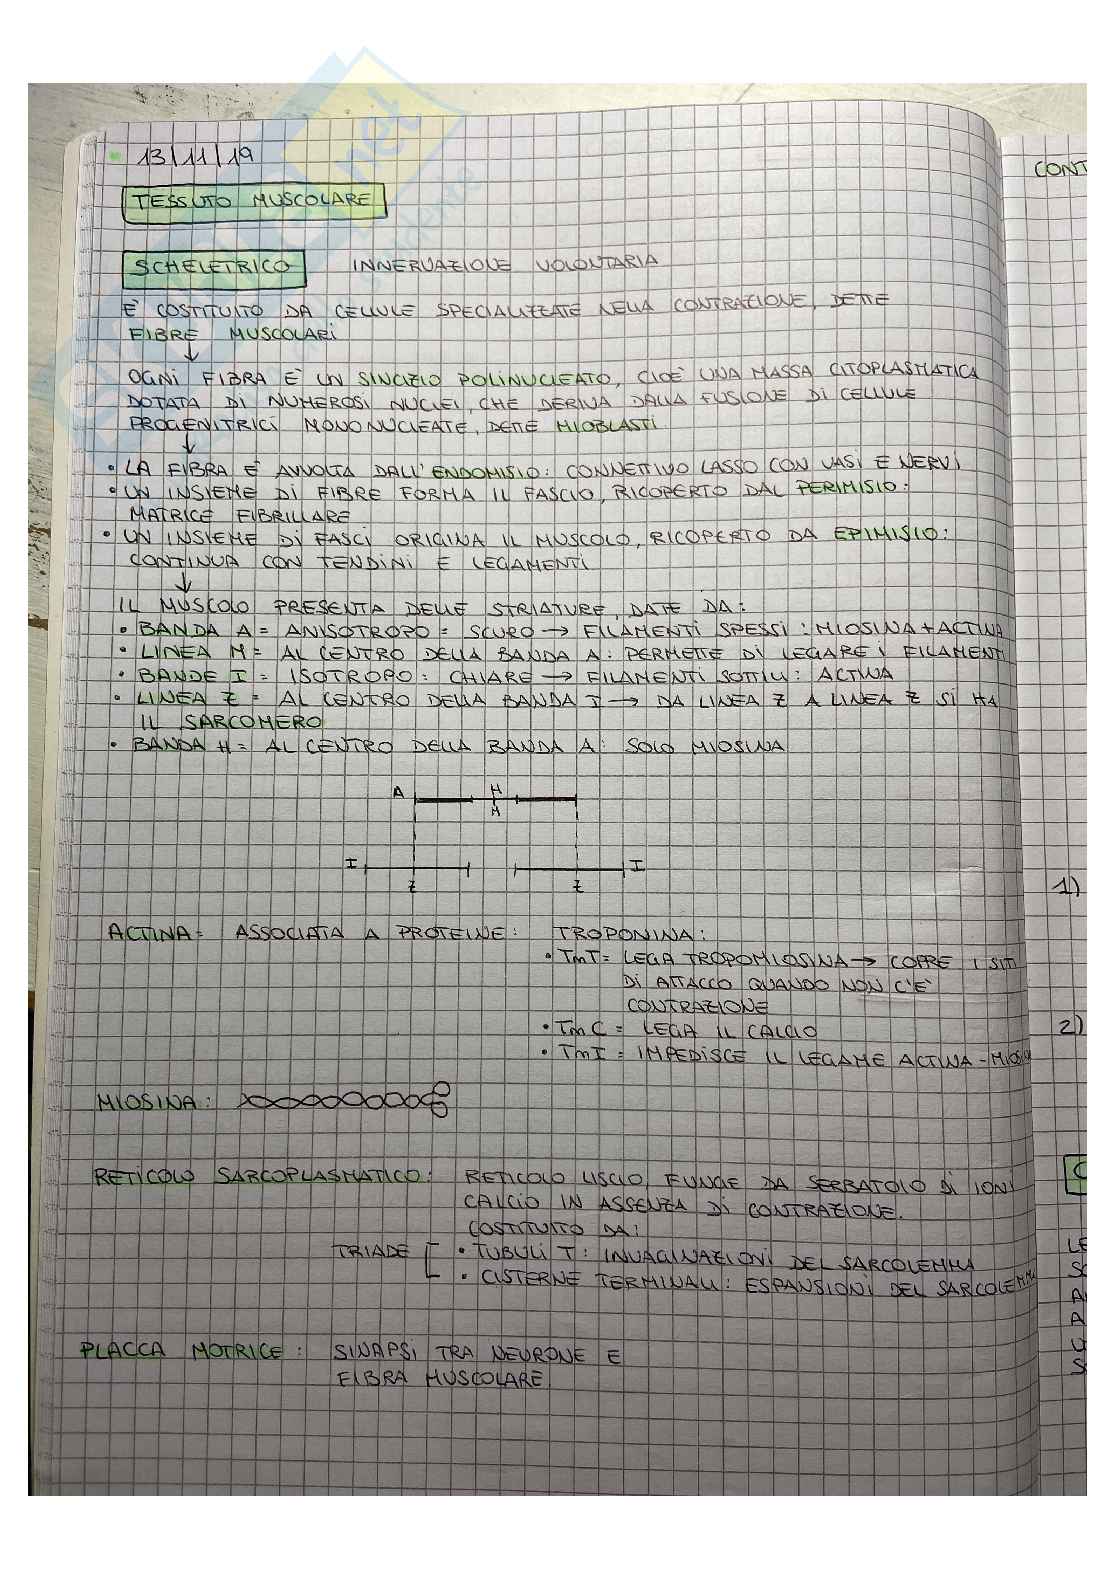 13/11/19
TESSUTO MUSCOLARE
SCHELETRICO INNERVAZIONE VOLONTARIA
È COSTITUITO DA CELLULE SPECIALIZZATE NELLA CONTRAZIONE, DETTE
FIBRE MUSCOLARI
↓
OGNI FIBRA È UN SINCIZIO POLINUCLEATO, CIOÈ UNA MASSA CITOPLASMATICA
DOTATA DI NUMEROSI NUCLEI, CHE DERIVA DALLA FUSIONE DI CELLULE
PROGENITRICI MONONUCLEATE, DETTE MIOBLASTI
↓
• LA FIBRA È AVVOLTA DALL'ENDOMISIO: CONNETTIVO LASSO CON VASI E NERVI
• UN INSIEME DI FIBRE FORMA IL FASCIO, RICOPERTO DAL PERIMISIO:
MATRICE FIBRILLARE
• UN INSIEME DI FASCI ORIGINA IL MUSCOLO, RICOPERTO DA EPIMISIO:
CONTINUA CON TENDINI E LEGAMENTI
↓
IL MUSCOLO PRESENTA DELLE STRIATURE, DATE DA:
• BANDA A = ANISOTROPO = SCURO → FILAMENTI SPESSI: MIOSINA + ACTINA
• LINEA M = AL CENTRO DELLA BANDA A: PERMETTE DI LEGARE I FILAMENTI
• BANDE I = ISOTROPO: CHIARE → FILAMENTI SOTTILI: ACTINA
• LINEA Z = AL CENTRO DELLA BANDA I → DA LINEA Z A LINEA Z SI HA
IL SARCOMERO
• BANDA H = AL CENTRO DELLA BANDA A: SOLO MIOSINA
A H
M
I I
Z Z
ACTINA = ASSOCIATA A PROTEINE: TROPONINA:
• TmT = LEGA TROPOMIOSINA → COPRE I SITI
DI ATTACCO QUANDO NON C'È
CONTRAZIONE
• TmC = LEGA IL CALCIO
• TmI = IMPEDISCE IL LEGAME ACTINA - MIOSI
MIOSINA:
RETICOLO SARCOPLASMATICO: RETICOLO LISCIO, FUNGE DA SERBATOIO DI IONI
CALCIO IN ASSENZA DI CONTRAZIONE.
COSTITUITO DA:
TRIADE [ • TUBULI T: INVAGINAZIONI DEL SARCOLEMMA
• CISTERNE TERMINALI: ESPANSIONI DEL SARCOLEMMA
PLACCA MOTRICE: SINAPSI TRA NEURONE E
FIBRA MUSCOLARE
CONT
1)
2)
C
LE
SC
A
U
S